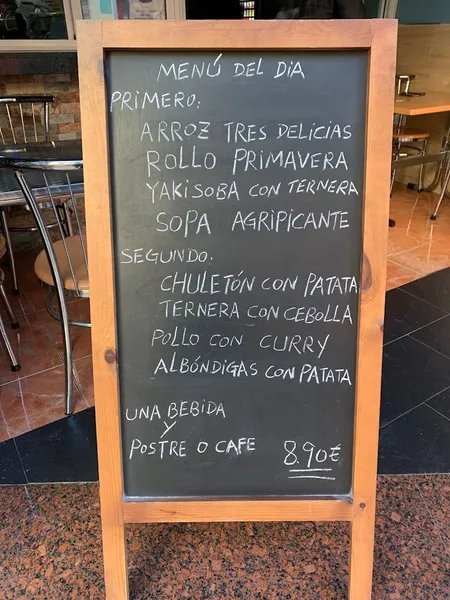 MENÚ DEL DIA
PRIMERO:
ARROZ TRES DELICIAS
ROLLO PRIMAVERA
YAKISOBA CON TERNERA
SOPA AGRIPICANTE
SEGUNDO.
CHULETÓN CON PATATA
TERNERA CON CEBOLLA
POLLO CON CURRY
ALBÓNDIGAS CON PATATA
UNA BEBIDA
Y
POSTRE O CAFE 8.90€